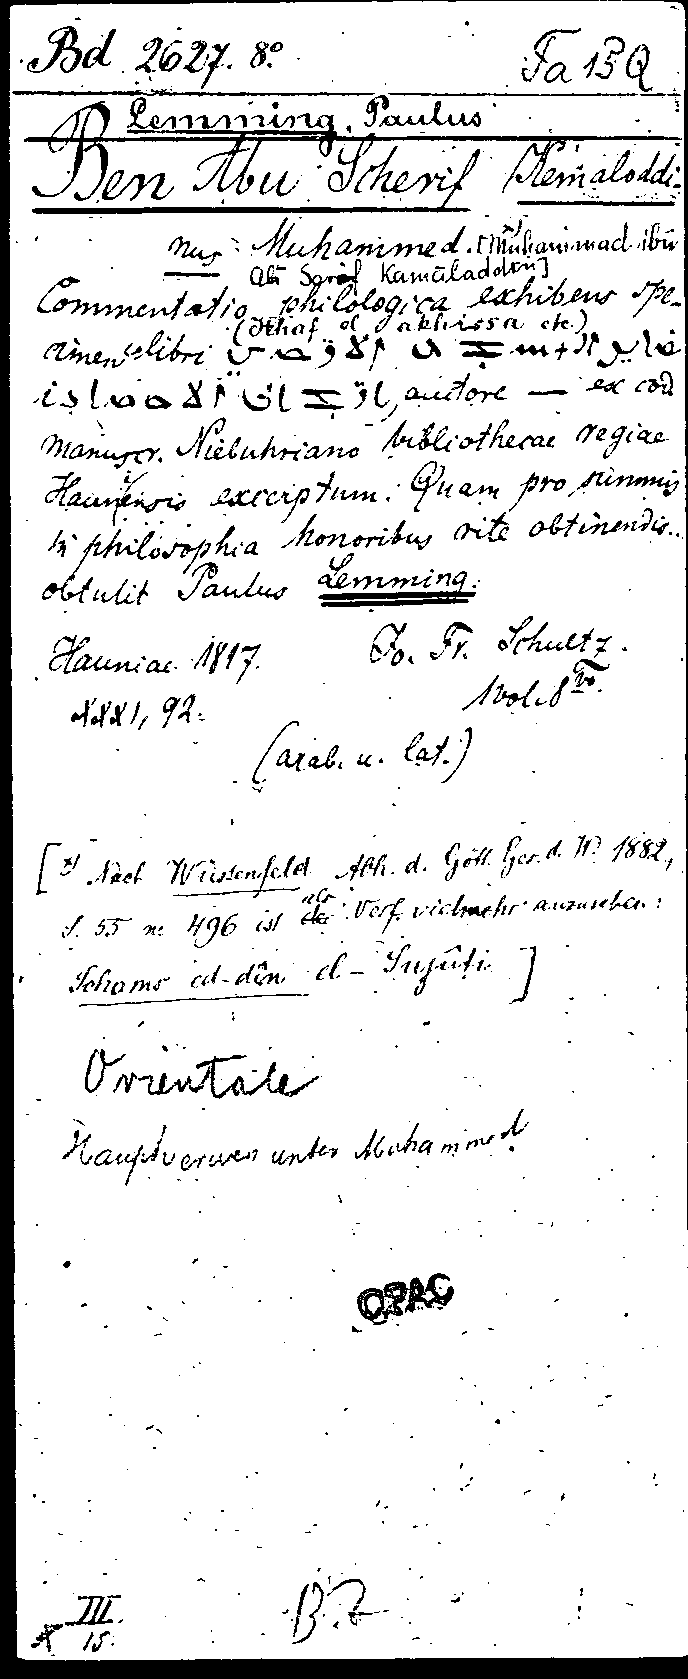 Bd 2627. 8° Fa 15 Q
Lemming, Paulus
Ben Abu Scherif Kemaloddi-
nus Muhammed. [Muhammad ibn
Abi Šerif Kamāladdīn]
Commentatio philologica exhibens spe-
(Ithaf el akhissa etc.)
cimen libri
auctore — ex cod
manuscr. Niebuhriano bibliothecae regiae
Hauniensis exceriptum. Quam pro summis
in philosophia honoribus rite obtinendis..
obtulit Paulus Lemming.
Hauniae 1817. Jo. Fr. Schultz.
XXXI, 92. 1 vol. 8vo.
(arab. u. lat.)
[*) Nach Wüstenfeld Abh. d. Gött. Ges. d. W. 1882,
S. 55 n. 496 ist als Verf. vielmehr anzusehen:
Schams ed-dîn el-Sujûti ]
Orientale
Hauptverweis unter Mohammed
OPAC
III
15.
B.7